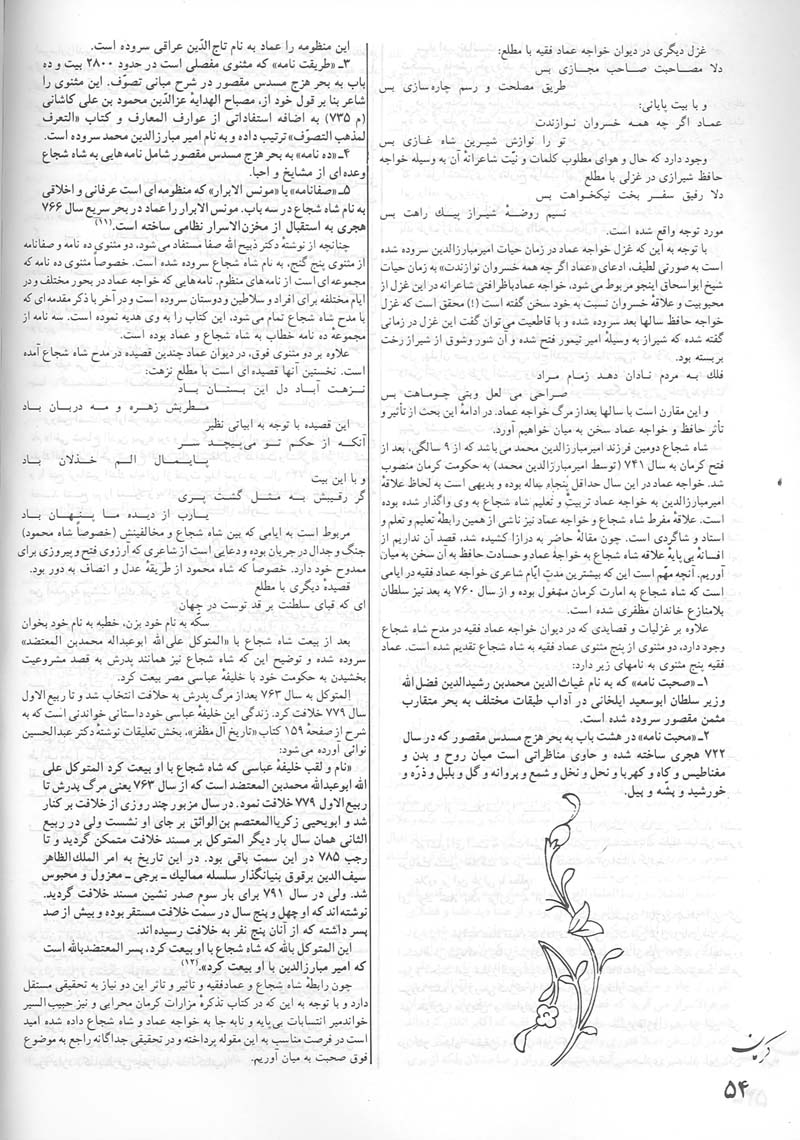 غزل دیگری در دیوان خواجه عماد فقیه با مطلع:
دلا مصاحبت صاحب مجازی بس
طریق مصلحت و رسم چاره‌سازی بس
و با بیت پایانی:
عماد اگر چه همه خسروان نوازندت
تو را نوازش شیرین شاه غازی بس
وجود دارد که حال و هوای مطلوب کلمات و نیّت شاعرانهٔ آن به وسیله خواجه
حافظ شیرازی در غزلی با مطلع
دلا رفیق سفر بخت نیکخواهت بس
نسیم روضهٔ شیراز پیك راهت بس
مورد توجه واقع شده است.
با توجه به این که غزل خواجه عماد در زمان حیات امیرمبارزالدین سروده شده
است به صورتی لطیف، ادعای «عماد اگر چه همه خسروان نوازندت» به زمان حیات
شیخ ابواسحاق اینجو مربوط می‌شود، خواجه عماد باظرافتی شاعرانه در این غزل از
محبوبیت و علاقهٔ خسروان نسبت به خود سخن گفته است (!) محقق است که غزل
خواجه حافظ سالها بعد سروده شده و با قاطعیت می‌توان گفت این غزل در زمانی
گفته شده که شیراز به وسیلهٔ امیر تیمور فتح شده و آن شور وشوق از شیراز رخت
بر بسته بود.
فلك به مردم نادان دهد زمام مراد
صراحی می لعل وبتی چوماهت بس
و این مقارن است با سالها بعداز مرگ خواجه عماد. در ادامهٔ این بحث از تأثیر و
تأثر حافظ و خواجه عماد سخن به میان خواهیم آورد.
شاه شجاع دومین فرزند امیرمبارزالدین محمد می‌باشد که از ۹ سالگی، بعد از
فتح کرمان به سال ۷۴۱ (توسط امیرمبارزالدین محمد) به حکومت کرمان منصوب
شد. خواجه عماد در این سال حداقل پنجاه ساله بوده و بدیهی است به لحاظ علاقهٔ
امیرمبارزالدین به خواجه عماد تربیت و تعلیم شاه شجاع به وی واگذار شده بوده
است. علاقهٔ مفرط شاه شجاع و خواجه عماد نیز ناشی از همین رابطهٔ تعلیم و تعلم و
استاد و شاگردی است. چون مقالهٔ حاضر به درازا کشیده شد، قصد آن نداریم از
افسانهٔ بی‌پایهٔ علاقه شاه شجاع به خواجهٔ عماد و حسادت حافظ به آن سخن به میان
آوریم. آنچه مهّم است این که بیشترین مدت ایّام شاعری خواجه عماد فقیه در ایامی
است که شاه شجاع به امارت کرمان مشغول بوده و از سال ۷۶۰ به بعد نیز سلطان
بلامنازع خاندان مظفری شده است.
علاوه بر غزلیات و قصایدی که در دیوان خواجه عماد فقیه در مدح شاه شجاع
وجود دارد، دو مثنوی از پنج مثنوی عماد فقیه به شاه شجاع تقدیم شده است. عماد
فقیه پنج مثنوی به نامهای زیر دارد:
۱ـ «صحبت نامه» که به نام غیاث الدین محمد بن رشیدالدین فضل الله
وزیر سلطان ابوسعید ایلخانی در آداب طبقات مختلف به بحر متقارب
مثمن مقصور سروده شده است.
۲ـ «محبت نامه» در هشت باب به بحر هزج مسدس مقصور که در سال
۷۲۲ هجری ساخته شده و حاوی مناظراتی است میان روح و بدن و
مغناطیس و کاه و کهربا و نحل و نخل و شمع و پروانه و گل و بلبل و ذرّه و
خورشید و پشّه و پیل.
این منظومه را عماد به نام تاج الدّین عراقی سروده است.
۳ـ «طریقت نامه» که مثنوی مفصلی است در حدود ۲۸۰۰ بیت و ده
باب به بحر هزج مسدس مقصور در شرح مبانی تصوّف. این مثنوی را
شاعر بنا بر قول خود از، مصباح الهدایهٔ عزالدّین محمود بن علی کاشانی
(م ۷۳۵) به اضافه استفاداتی از عوارف المعارف و کتاب «التعرف
لمذهب التصوّف» ترتیب داده و به نام امیر مبارزالدین محمد سروده است.
۴ـ «ده نامه» به بحر هزج مسدس مقصور شامل نامه‌هایی به شاه شجاع
و عده‌ای از مشایخ و احبا.
۵ـ «صفانامه» یا «مونس الابرار» که منظومه‌ای است عرفانی و اخلاقی
به نام شاه شجاع در سه باب. مونس الابرار را عماد در بحر سریع سال ۷۶۶
هجری به استقبال از مخزن الاسرار نظامی ساخته است.(۱۱)
چنانچه از نوشتهٔ دکتر ذبیح الله صفا مستفاد می‌شود، دو مثنوی ده نامه و صفانامه
از مثنوی پنج گنج، به نام شاه شجاع سروده شده است. خصوصاً مثنوی ده نامه که
مجموعه‌ای است از نامه‌های منظوم. نامه‌هایی که خواجه عماد در بحور مختلف و در
ایام مختلفه برای افراد و سلاطین و دوستان سروده است و در آخر با ذکر مقدمه‌ای که
با مدح شاه شجاع تمام می‌شود، این کتاب را به وی هدیه نموده است. سه نامه از
مجموعهٔ ده نامه خطاب به شاه شجاع و عماد بوده است.
علاوه بر دو مثنوی فوق، در دیوان عماد چندین قصیده در مدح شاه شجاع آمده
است. نخستین آنها قصیده‌ای است با مطلع نزهت:
نزهت آباد دل این بستان باد
مطربش زهره و مه دربان باد
این قصیده با توجه به ابیاتی نظیر
آنکه از حکم تو می‌پیچد سر
پایمال الم خذلان باد
و با این بیت
گر رقیبش به مثل گشت پری
یارب از دیده ما پنهان باد
مربوط است به ایامی که بین شاه شجاع و مخالفینش (خصوصاً شاه محمود)
جنگ و جدال در جریان بوده و دعایی است از شاعری که آرزوی فتح و پیروزی برای
ممدوح خود دارد. خصوصاً که شاه محمود از طریقهٔ عدل و انصاف به دور بود.
قصیدهٔ دیگری با مطلع
ای که قبای سلطنت بر قد توست در جهان
سکّه به نام خود بزن، خطبه به نام خود بخوان
بعد از بیعت شاه شجاع با «المتوکل علی الله ابوعبداله محمدبن المعتضد»
سروده شده و توضیح این که شاه شجاع نیز همانند پدرش به قصد مشروعیت
بخشیدن به حکومت خود با خلیفهٔ عباسی مصر بیعت کرد.
المتوکل به سال ۷۶۳ بعداز مرگ پدرش به خلافت انتخاب شد و تا ربیع الاول
سال ۷۷۹ خلافت کرد. زندگی این خلیفهٔ عباسی خود داستانی خواندنی است که به
شرح از صفحهٔ ۱۵۹ کتاب «تاریخ آل مظفر»، بخش تعلیقات نوشتهٔ دکتر عبدالحسین
نوائی آورده می‌شود:
«نام و لقب خلیفهٔ عباسی که شاه شجاع با او بیعت کرد المتوکل علی
الله ابوعبدالله محمدبن المعتضد است که از سال ۷۶۳ یعنی مرگ پدرش تا
ربیع الاول ۷۷۹ خلافت نمود. در سال مزبور چند روزی از خلافت بر کنار
شد و ابویحیی زکریاالمعتصم بن الواثق بر جای او نشست ولی در ربیع
الثانی همان سال بار دیگر المتوکل بر مسند خلافت متمکن گردید و تا
رجب ۷۸۵ در این سمت باقی بود. در این تاریخ به امر الملك الظاهر
سیف الدین برقوق بنیانگذار سلسله ممالیك ـ برجی ـ معزول و محبوس
شد. ولی در سال ۷۹۱ برای بار سوم صدر نشین مسند خلافت گردید.
نوشته‌اند که او چهل و پنج سال در سمت خلافت مستقر بوده و بیش از صد
پسر داشته که از آنان پنج نفر به خلافت رسیده‌اند.
این المتوکل بالله که شاه شجاع با او بیعت کرد، پسر المعتضدبالله است
که امیر مبارزالدین با او بیعت کرد».(۱۲)
چون رابطهٔ شاه شجاع و عمادفقیه و تأثیر و تاثر این دو نیاز به تحقیقی مستقل
دارد و با توجه به این که در کتاب تذکرهٔ مزارات کرمان محرابی و نیز حبیب السیر
خواندمیر انتسابات بی‌پایه و نابه جا به خواجه عماد و شاه شجاع داده شده امید
است در فرصت مناسب به این مقوله پرداخته و در تحقیقی جداگانه راجع به موضوع
فوق صحبت به میان آوریم.
کرمان
۵۴